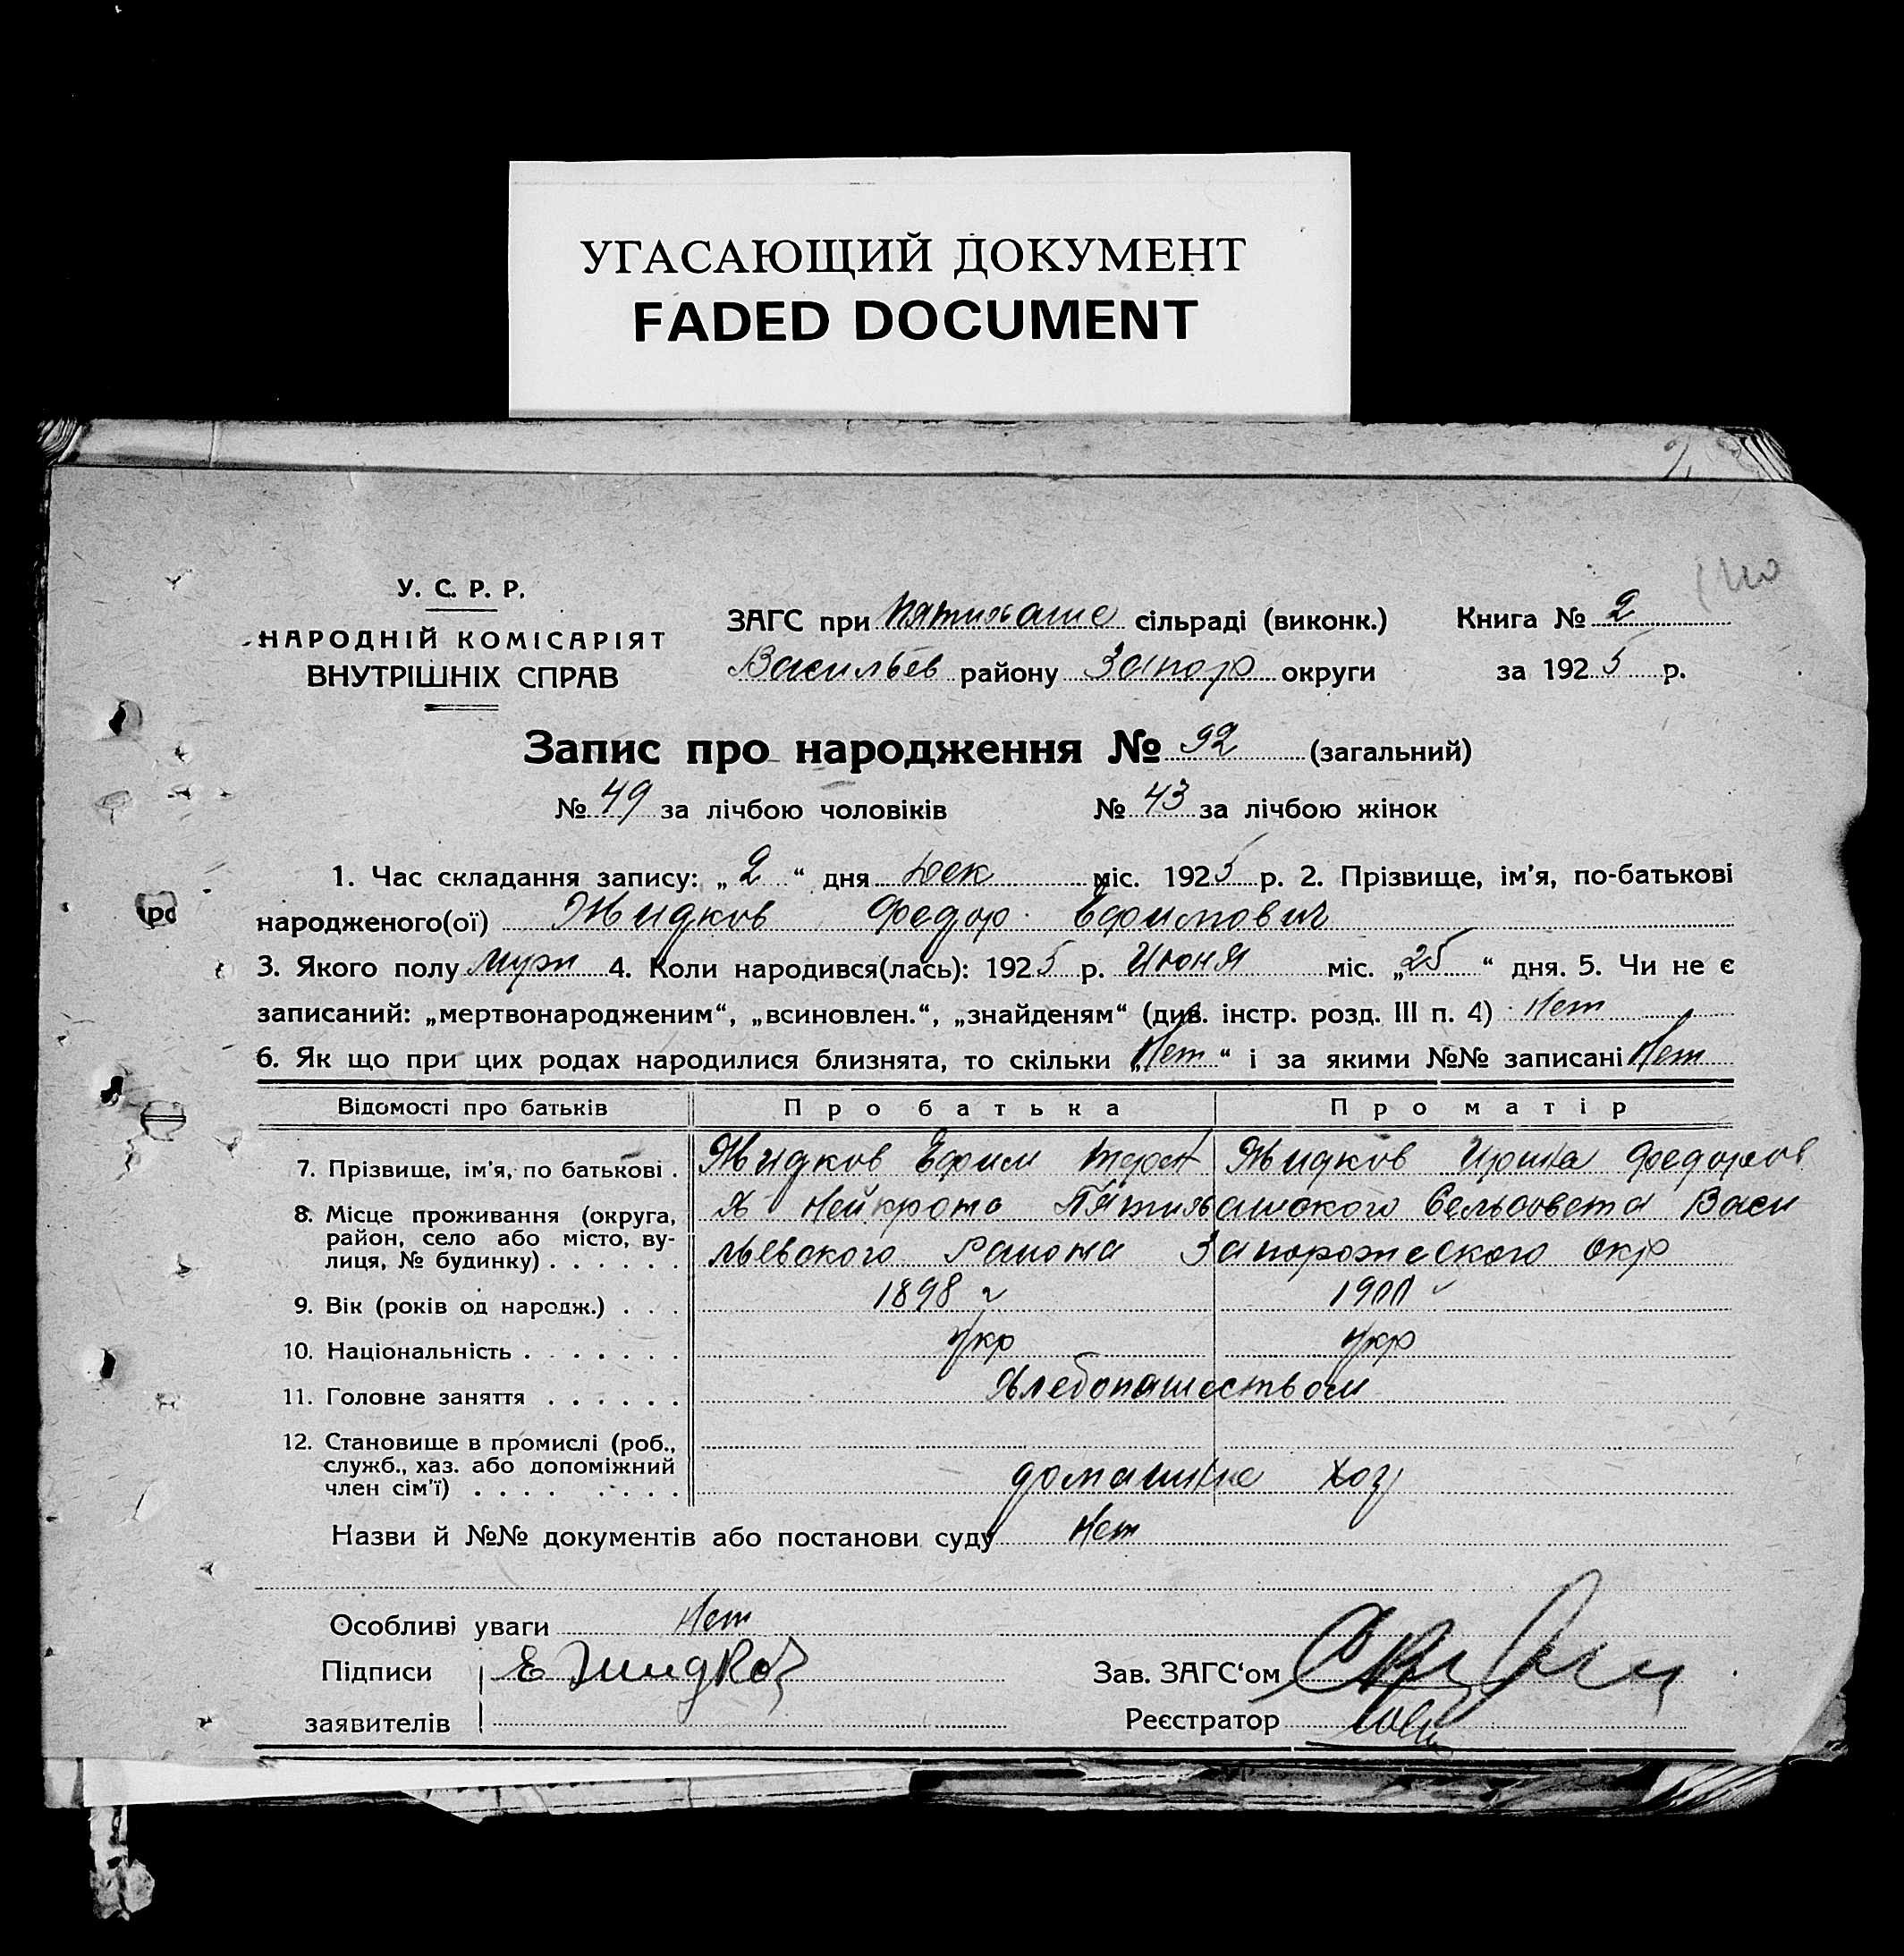 УГАСАЮЩИЙ ДОКУМЕНТ
FADED DOCUMENT
У. С. Р. Р.
НАРОДНІЙ КОМІСАРІЯТ
ВНУТРІШНІХ СПРАВ
ЗАГС при Пятихаше сільраді (виконк.)
Васильев району Запор округи
Книга № 2
за 1925 р.
Запис про народження № 92 (загальний)
№ 49 за лічбою чоловіків № 43 за лічбою жінок
1. Час складання запису: „2“ дня Дек міс. 1925 р. 2. Прізвище, ім’я, по-батькові
народженого(ої) Жидков Федор Ефимович
3. Якого полу муж 4. Коли народився(лась): 1925 р. Июня міс. „25“ дня. 5. Чи не є
записаний: „мертвонародженим“, „всиновлен.“, „знайденям“ (див. інстр. розд. III п. 4) Нет
6. Як що при цих родах народилися близнята, то скільки „Нет“ і за якими №№ записані Нет
Відомості про батьків Про батька Про матір
7. Прізвище, ім’я, по батькові . Жидков Ефим Жидков Ирина Федоров
8. Місце проживання (округа, Х Нейкрона Пятихашского Сельсовета Васи
район, село або місто, ву-
лиця, № будинку) . . . . . . львского Района Запорожского окр
9. Вік (років од народж.) . . . 1898 г 1900
10. Національність . . . . . . . Укр Укр
11. Головне заняття . . . . . . Хлебопашеством
12. Становище в промислі (роб.,
служб., хаз. або допоміжний
член сім’ї) . . . . . . . . домашнее хоз
Назви й №№ документів або постанови суду Нет
Особливі уваги Нет
Підписи Е Жидков
заявителів
Зав. ЗАГС‘ом
Реєстратор